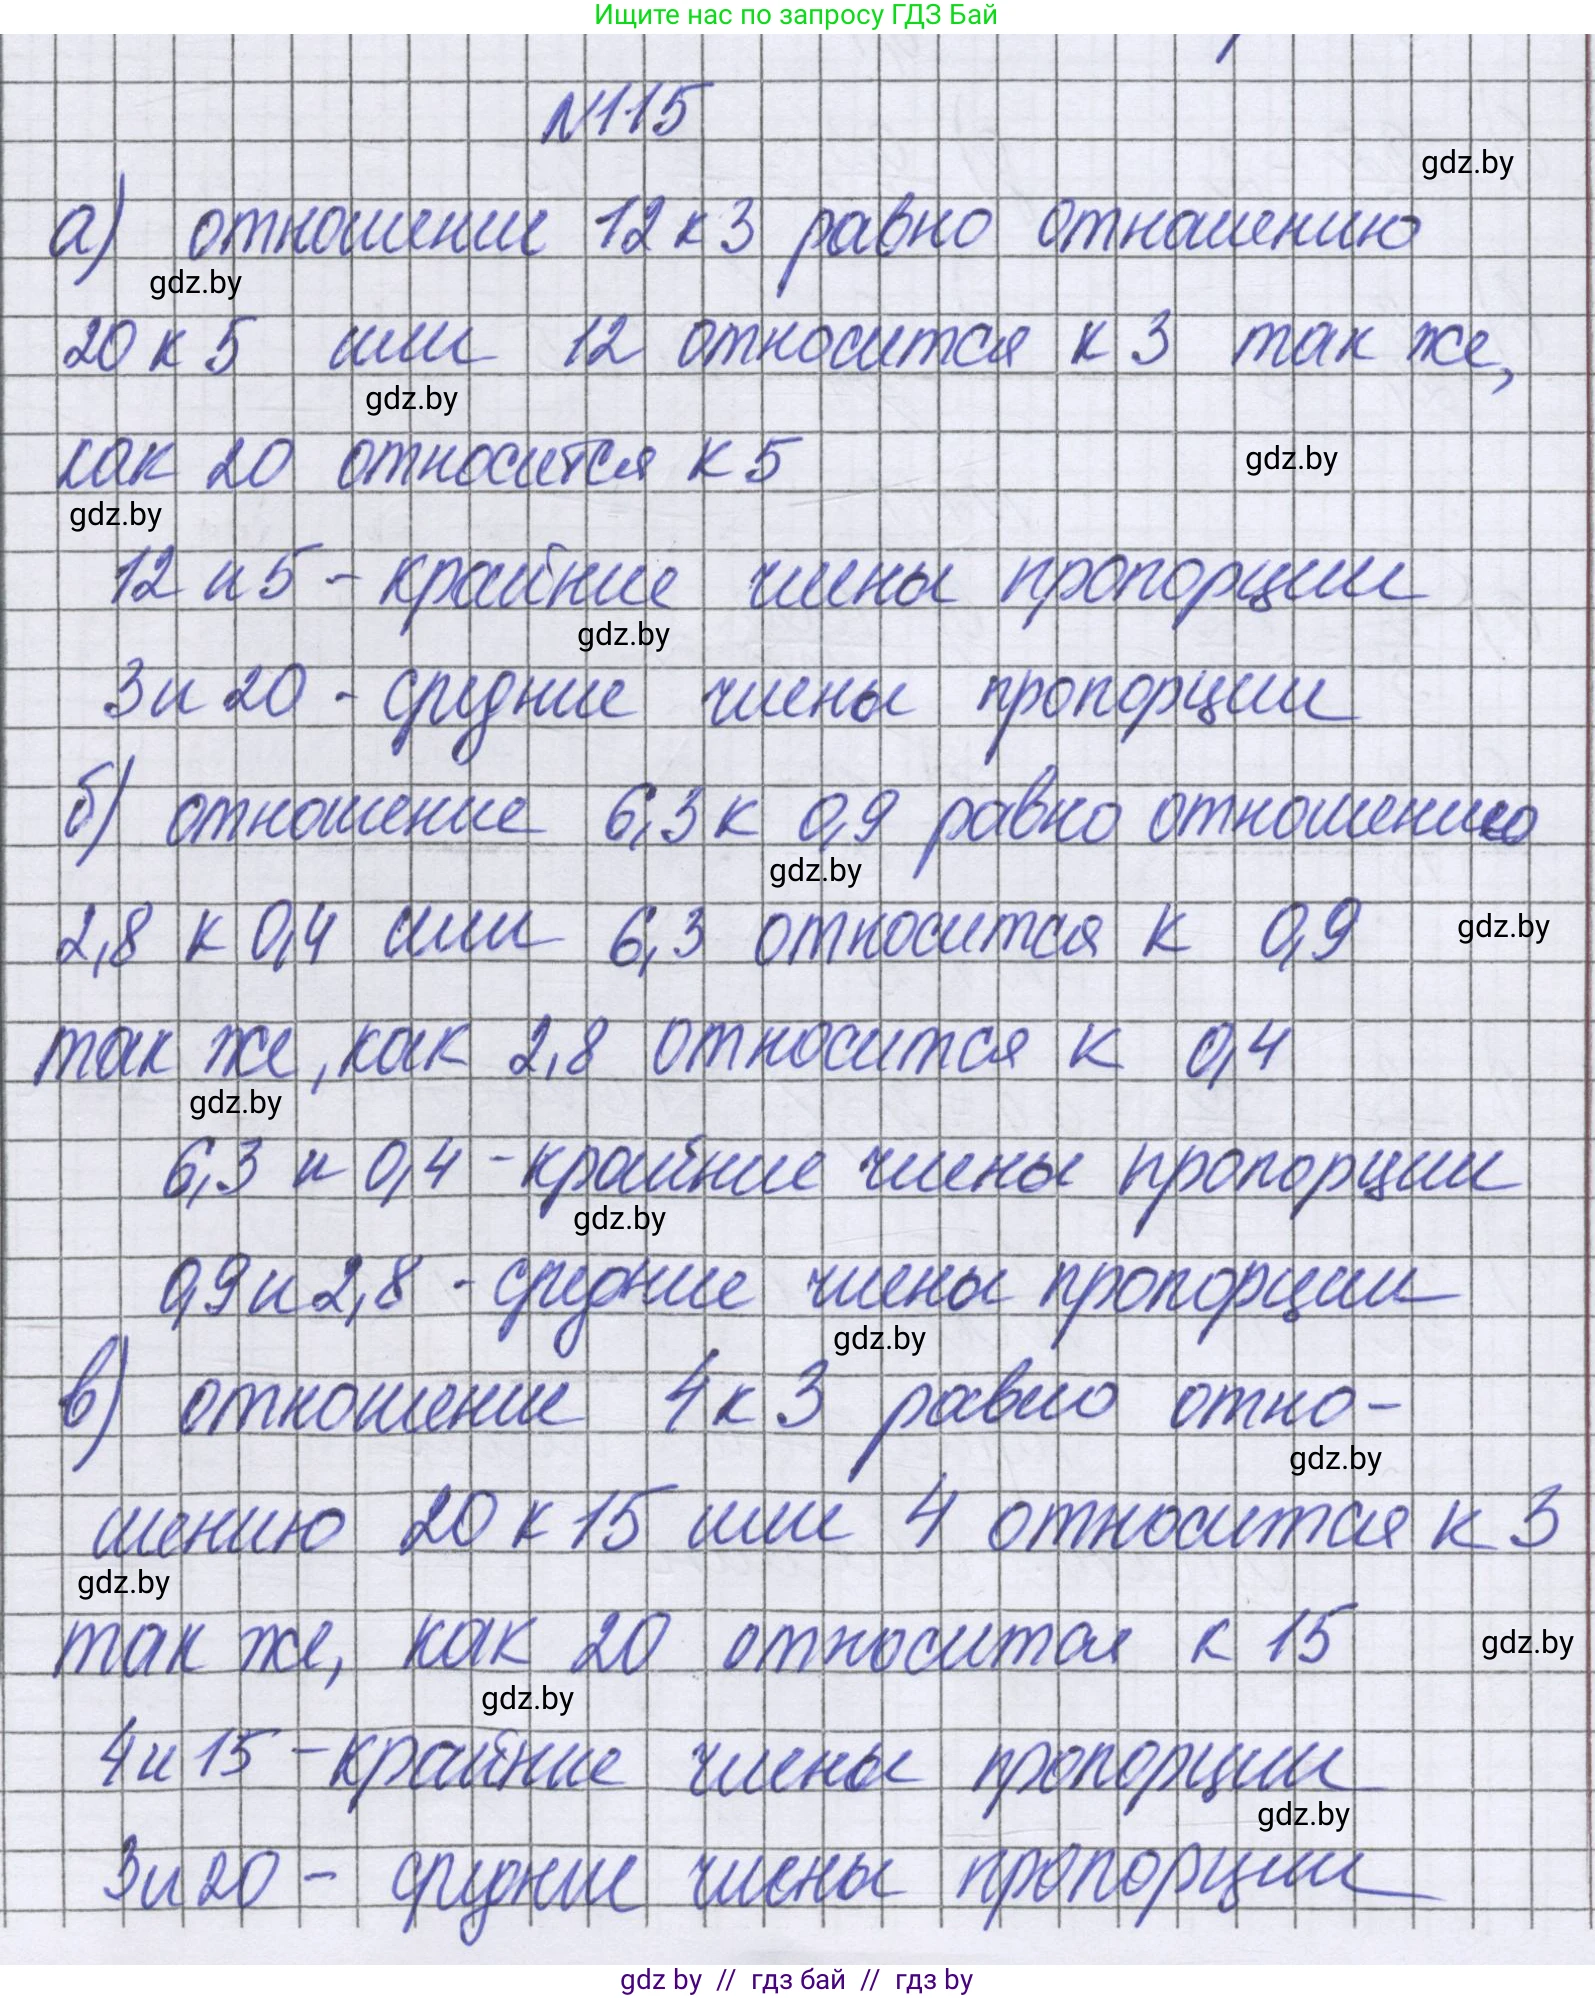 Ищите нас по запросу ГДЗ Бай
N115
gdz.by
а) отношение 12 к 3 равно отношению
gdz.by
20 к 5 или 12 относится к 3 так же,
gdz.by
как 20 относится к 5
gdz.by
gdz.by
12 и 5 - крайние члены пропорции
gdz.by
3 и 20 - средние члены пропорции
б) отношение 6,3 к 0,9 равно отношению
gdz.by
2,8 к 0,4 или 6,3 относится к 0,9
gdz.by
так же, как 2,8 относится к 0,4
gdz.by
6,3 и 0,4 - крайние члены пропорции
gdz.by
0,9 и 2,8 - средние члены пропорции
gdz.by
в) отношение 4 к 3 равно отно-
gdz.by
шению 20 к 15 или 4 относится к 3
gdz.by
так же, как 20 относится к 15
gdz.by
gdz.by
4 и 15 - крайние члены пропорции
gdz.by
3 и 20 - средние члены пропорции
gdz by // гдз бай // гдз by